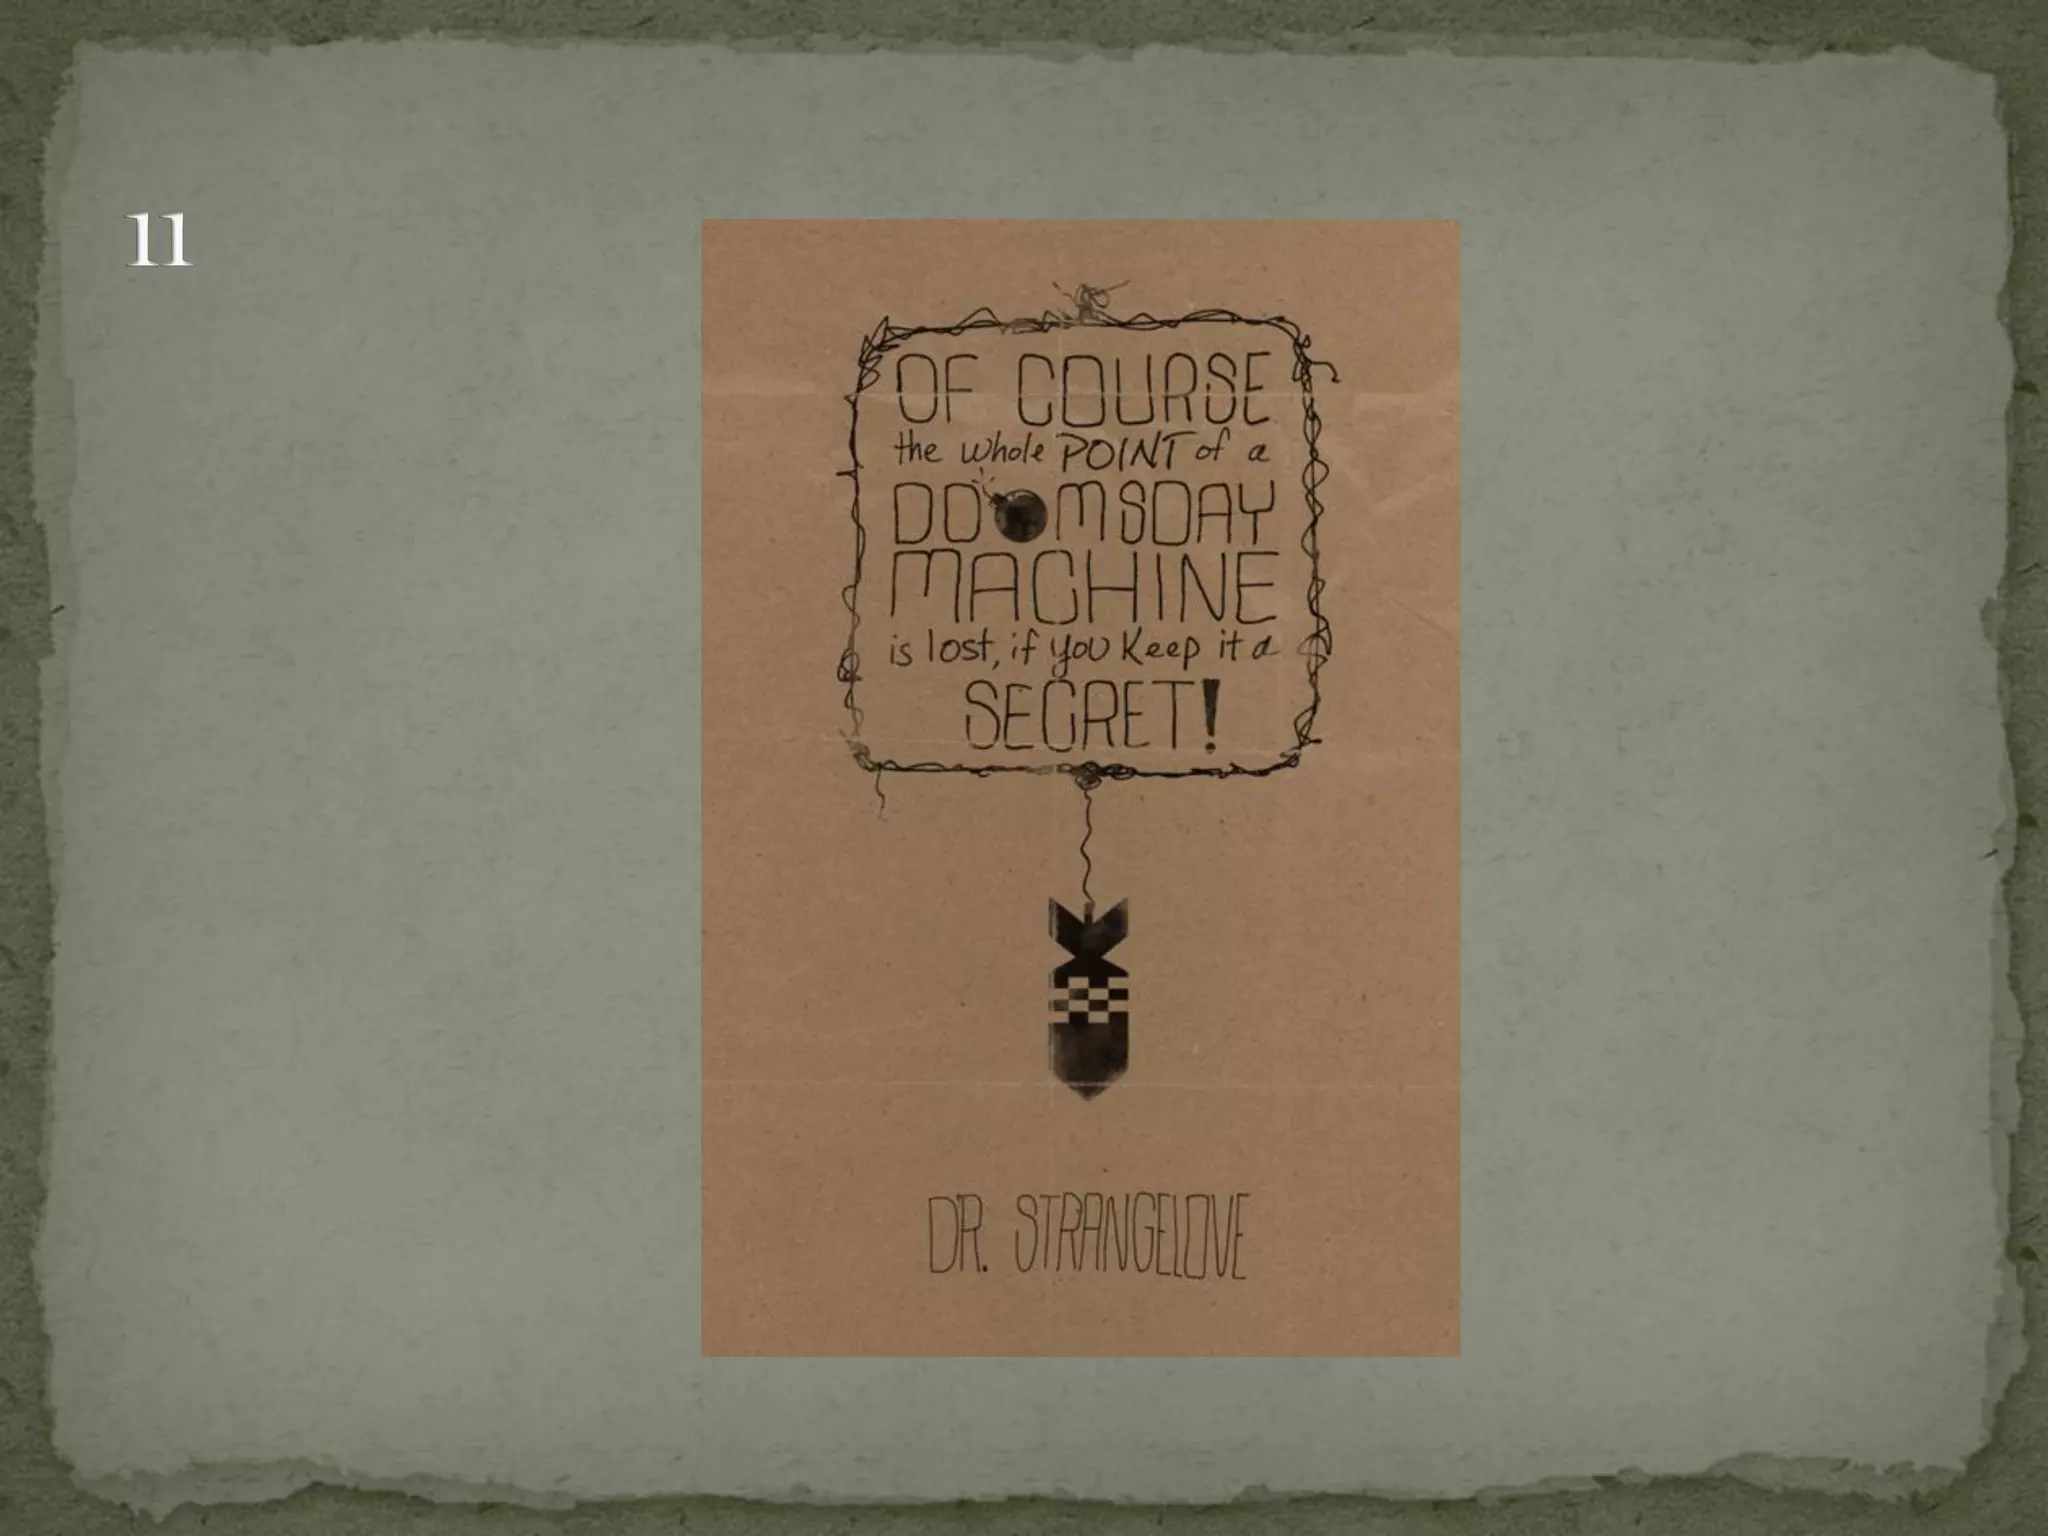 11
OF COURSE
the whole POINT of a
DOOMSDAY
MACHINE
is lost, if you Keep it a
SECRET!
DR. STRANGELOVE